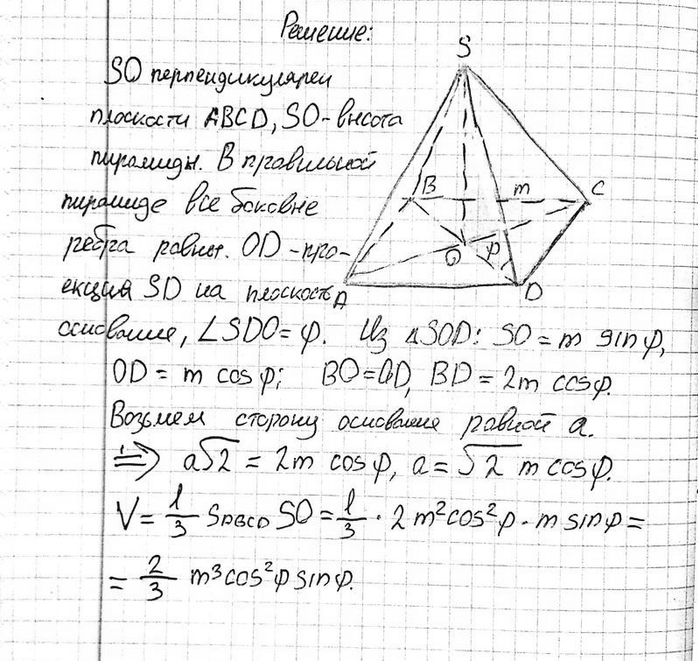 Решение:
SO перпендикулярен
плоскости ABCD, SO - высота
пирамиды. В правильной
пирамиде все боковые
ребра равны. OD - про-
екция SD на плоскость
основание, ∠SDO = φ. Из ΔSOD: SO = m sin φ,
OD = m cos φ; BO = OD, BD = 2m cos φ.
Возьмем сторону основание равной a.
⇒ a√2 = 2m cos φ, a = √2 m cos φ.
V = 1/3 SABCD SO = 1/3 · 2 m² cos² φ · m sin φ =
= 2/3 m³ cos² φ sin φ.
S
B
m
C
O
φ
A
D